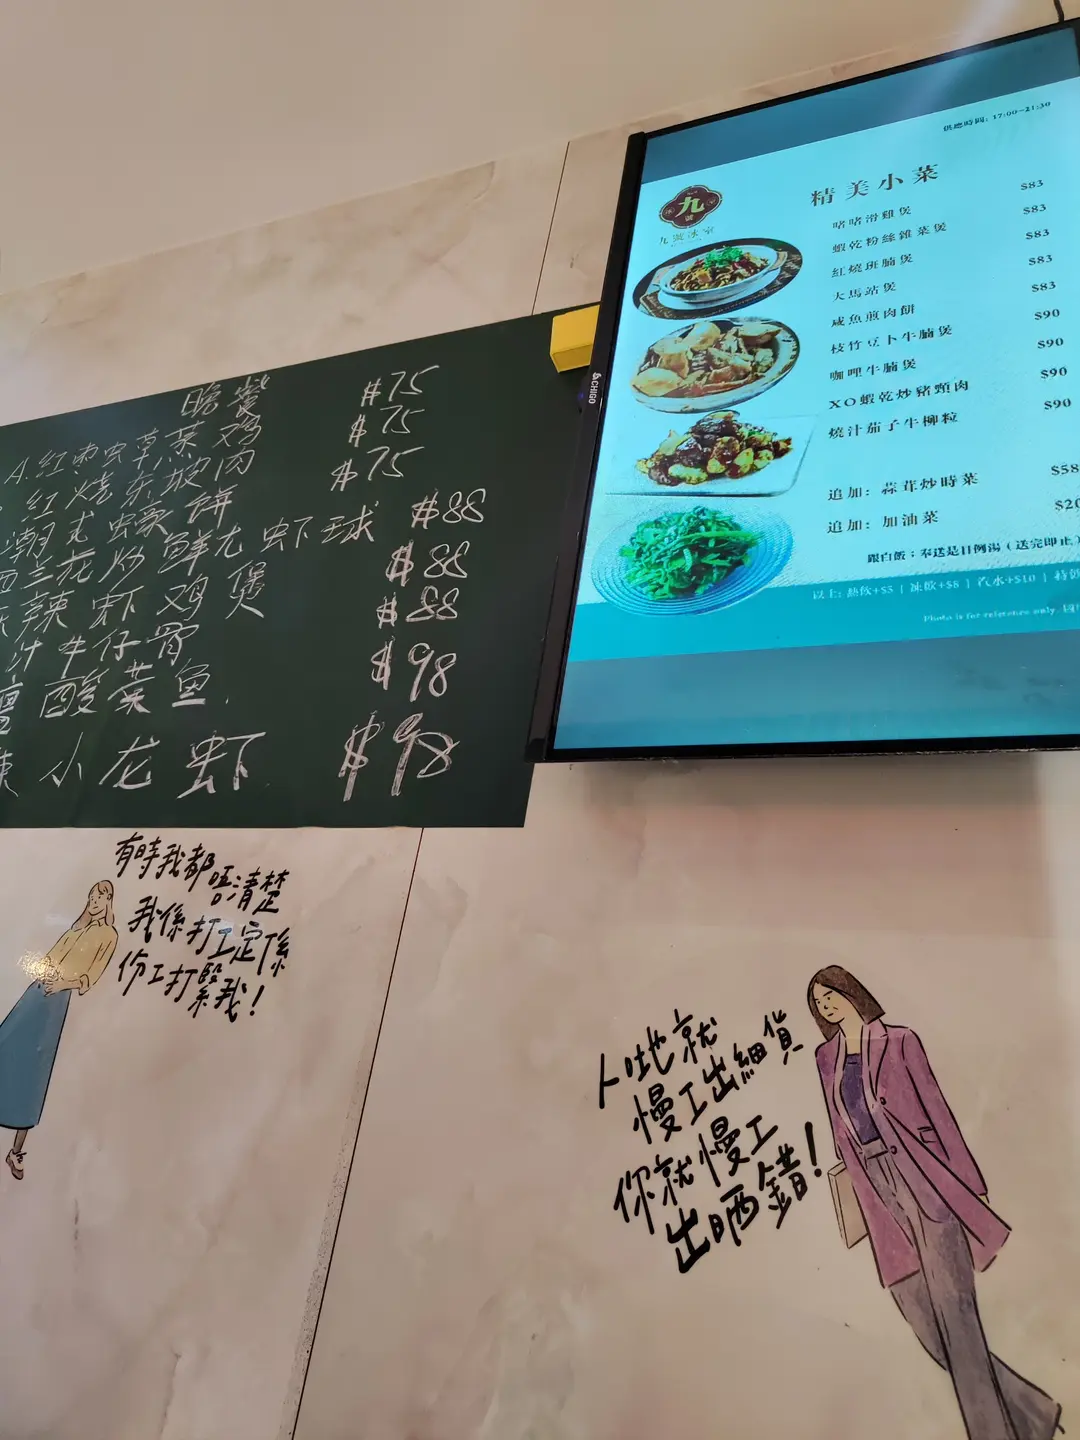 晚餐
A.红枣虫草蒸鸡 $75
红烧东坡肉 $75
潮式蠔饼 $75
西兰花炒鲜尤虾球 $88
辣虾鸡煲 $88
汁牛仔骨 $88
酸菜鱼. $98
小龙虾 $98
CHIGO
供應時間: 17:00-21:30
九
號
九號冰室
精美小菜
啫啫滑雞煲 $83
蝦乾粉絲雜菜煲 $83
紅燒班腩煲 $83
大馬站煲 $83
咸魚煎肉餅 $83
枝竹豆卜牛腩煲 $90
咖哩牛腩煲 $90
XO蝦乾炒豬頸肉 $90
燒汁茄子牛柳粒 $90
追加: 蒜茸炒時菜 $58
追加: 加油菜 $20
跟白飯; 奉送是日例湯 (送完即止)
以上: 熱飲+$5 | 凍飲+$8 | 汽水+$10 | 特飲
Photo is for reference only.
有時我都唔清楚
我係打工定係
份工打緊我!
人哋就
慢工出細貨
你就慢工
出晒錯!